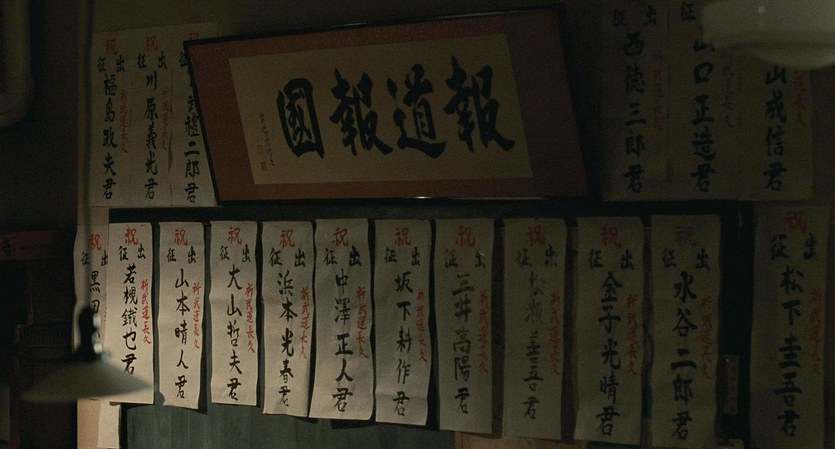 報道報國
山成信君
征
口正造君
出征
西徳三郎君
祈武運長久
二郎君
祝
出征
川原義光君
祈武運長久
祝
出征
福島政夫君
祈武運長久
祝
出征
松下圭吾君
祈武運長久
祝
出征
水谷二郎君
祈武運長久
祝
出征
金子光晴君
祈武運長久
祝
出征
善吾君
祈武運長久
祝
出征
三井高陽君
祈武運長久
祝
出征
坂下耕作君
祈武運長久
祝
出征
中澤正人君
祈武運長久
祝
出征
浜本光春君
祈武運長久
祝
出征
大山哲夫君
祈武運長久
祝
出征
山本晴人君
祈武運長久
祝
出征
若槻鐵也君
祈武運長久
祝
出征
黒田